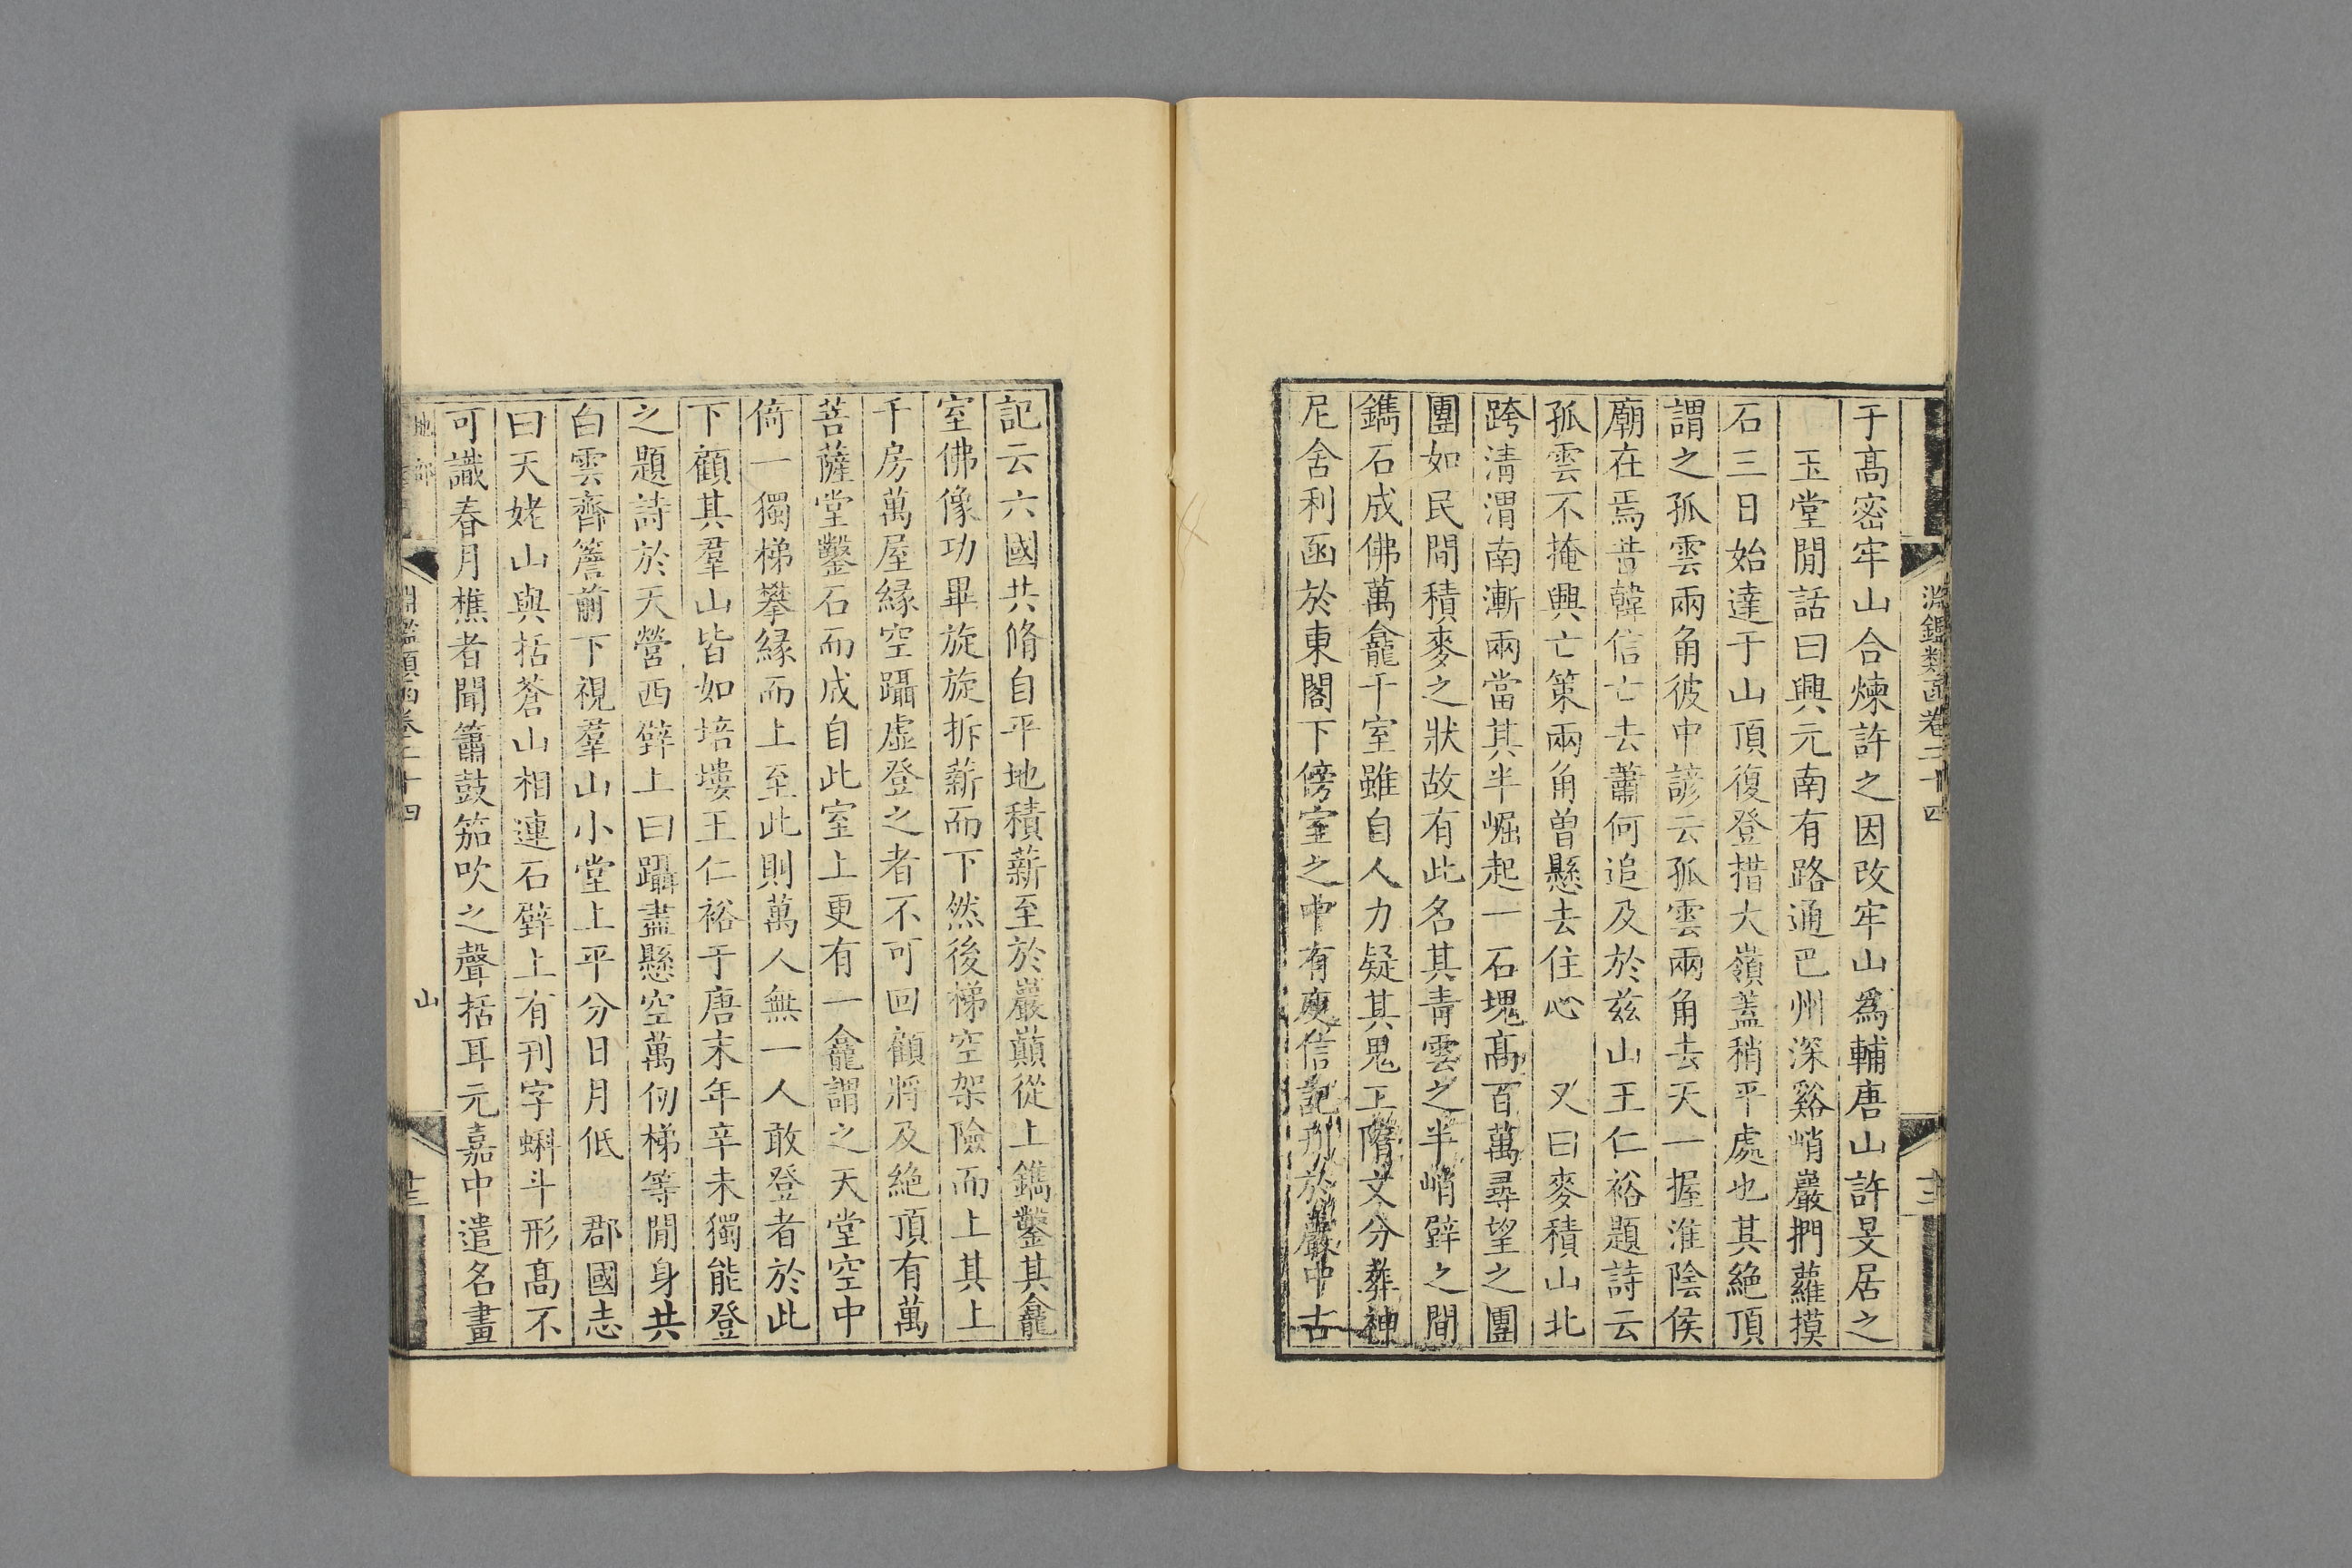 淵鑑類函卷二十四
十二
于高密牢山合煉許之因改牢山爲輔唐山許旻居之
玉堂閒話曰興元南有路通巴州深谿峭巖捫蘿摸
石三日始達于山頂復登措大嶺蓋稍平處也其絶頂
謂之孤雲兩角彼中諺云孤雲兩角去天一握淮陰侯
廟在焉昔韓信亡去蕭何追及於兹山王仁裕題詩云
孤雲不掩興亡策兩角曾懸去住心 又曰麥積山北
跨清渭南漸兩當其半崛起一石塊高百萬尋望之團
團如民間積麥之狀故有此名其青雲之半峭壁之間
鐫石成佛萬龕千室雖自人力疑其鬼工隋文分葬神
尼舍利函於東閣下傍室之中有庾信記刊於巖中古
記云六國共脩自平地積薪至於巖巔從上鐫鑿其龕
室佛像功畢旋旋拆薪而下然後梯空架險而上其上
千房萬屋縁空躡虛登之者不可回顧將及絶頂有萬
菩薩堂鑿石而成自此室上更有一龕謂之天堂空中
倚一獨梯攀縁而上至此則萬人無一人敢登者於此
下顧其羣山皆如培塿王仁裕于唐末年辛未獨能登
之題詩於天營西壁上曰躡盡懸空萬仞梯等閒身共
白雲齊簷前下視羣山小堂上平分日月低 郡國志
曰天姥山與括蒼山相連石壁上有刊字蝌斗形高不
可識春月樵者聞簫鼓笳吹之聲括耳元嘉中遣名畫
地部
淵鑑類函卷二十四
山
十三